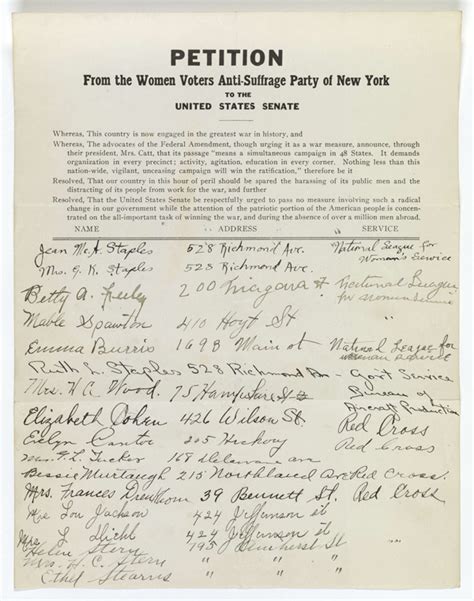 PETITION
From the Women Voters Anti-Suffrage Party of New York
TO THE
UNITED STATES SENATE
Whereas, This country is now engaged in the greatest war in history, and
Whereas, The advocates of the Federal Amendment, though urging it as a war measure, announce, through
their president, Mrs. Catt, that its passage "means a simultaneous campaign in 48 States. It demands
organization in every precinct; activity, agitation, education in every corner. Nothing less than this
nation-wide, vigilant, unceasing campaign will win the ratification," therefore be it
Resolved, That our country in this hour of peril should be spared the harassing of its public men and the
distracting of its people from work for the war, and further
Resolved, That the United States Senate be respectfully urged to pass no measure involving such a radical
change in our government while the attention of the patriotic portion of the American people is concen-
trated on the all-important task of winning the war, and during the absence of over a million men abroad.
NAME ADDRESS SERVICE
Jean Mc A. Staples 528 Richmond Ave. National League for Woman's Service
Mrs. G. K. Staples 528 Richmond Ave.
Betty A. 200 Niagara St National League for
Mable Spawton 410 Hoyt St
Emma Burris 1698 Main st National League for service
Ruth L. Staples 528 Richmond Gov't Service
Mrs. H. C. Wood. 75 Hampshire St Bureau of Aircraft Production
Elizabeth Cohen 426 Wilson St. Red Cross
Evelyn Cantor 205 Hickory Red Cross
Tucker 168 Delaware
Bessie Murtaugh 215 Northland Red Cross.
Mrs. Frances 39 Bennett St. Red Cross
Mrs Lou Jackson 424 Jefferson st
Mrs L 424 Jefferson st
Helen Stern 195 St
Mrs. H. C. Stern " "
Ethel Stearns " "